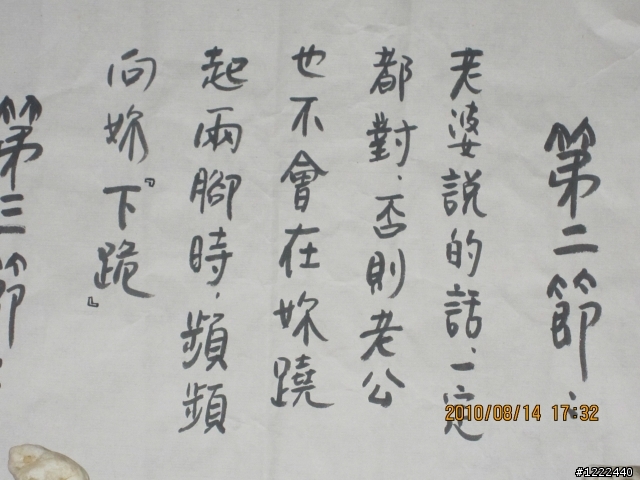 第二節:
老婆說的話、一定
都對、否則老公
也不會在妳蹺
起兩腳時、頻頻
向妳『下跪』
第三節:
2010/08/14 17:32
#1222440